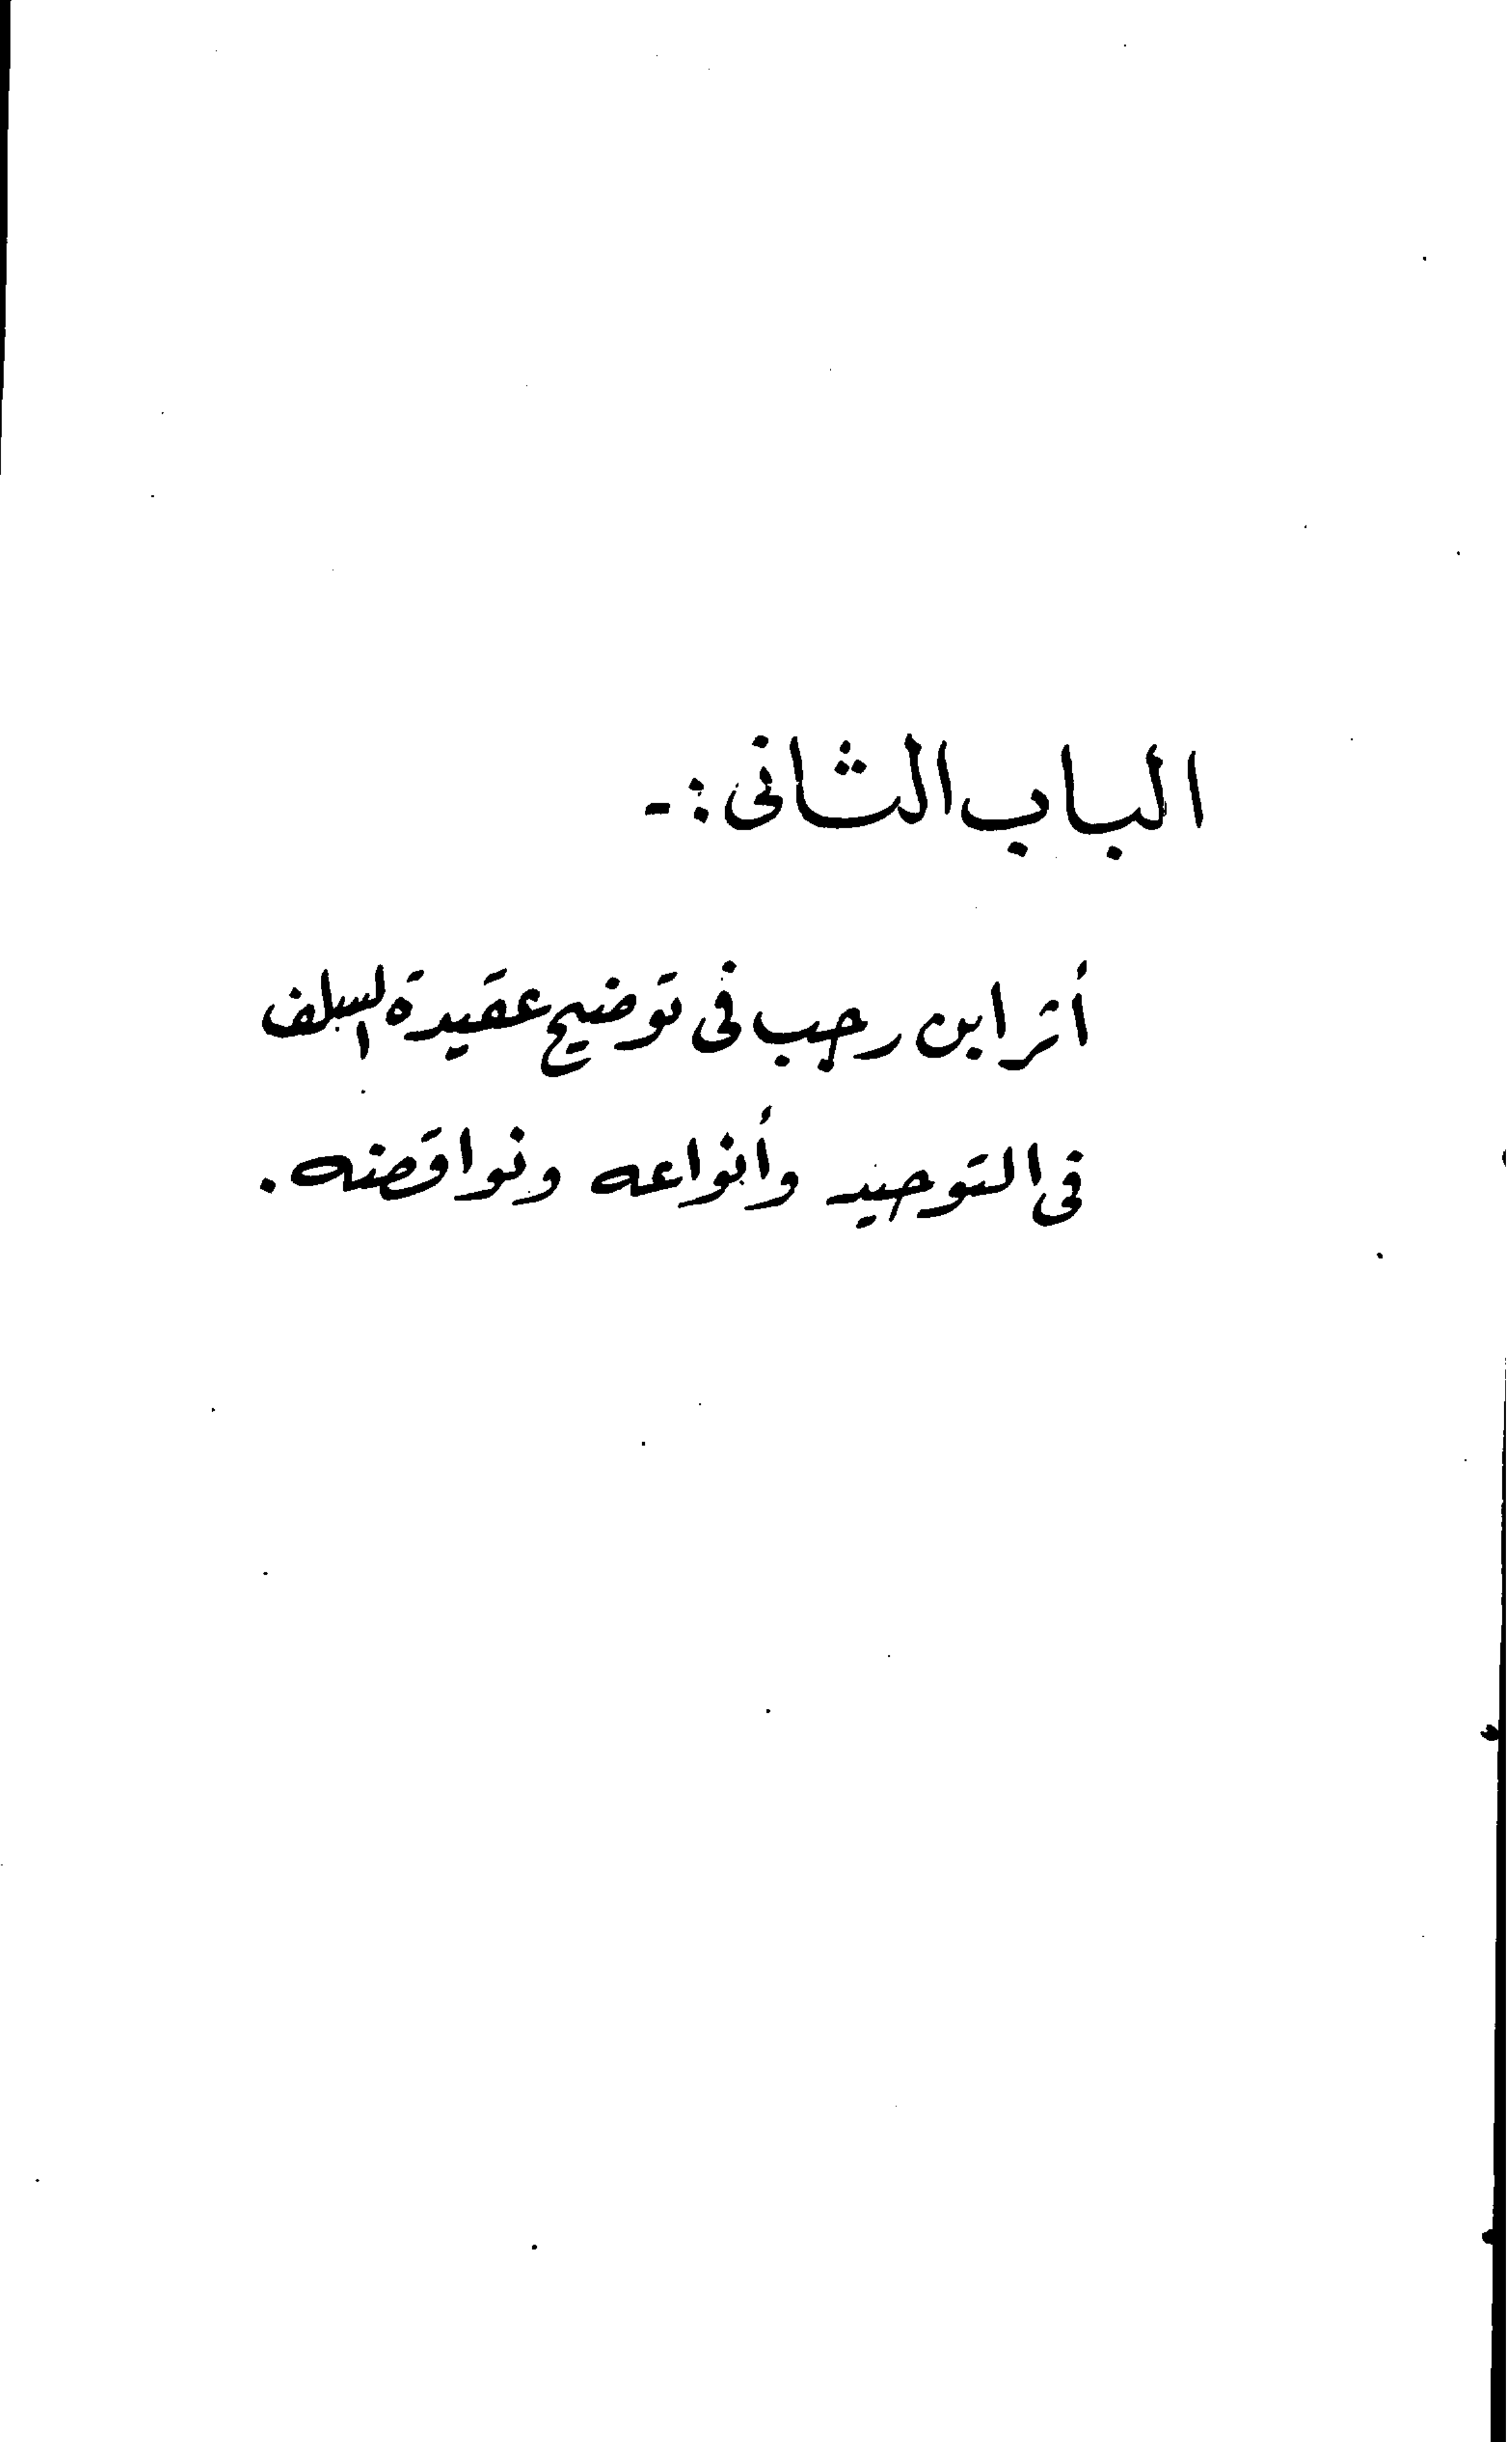 الباب الثاني :-
أثر ابن رجب في توضيح عقيدة السلف
في التوحيد وأنواعه ونواقضه .